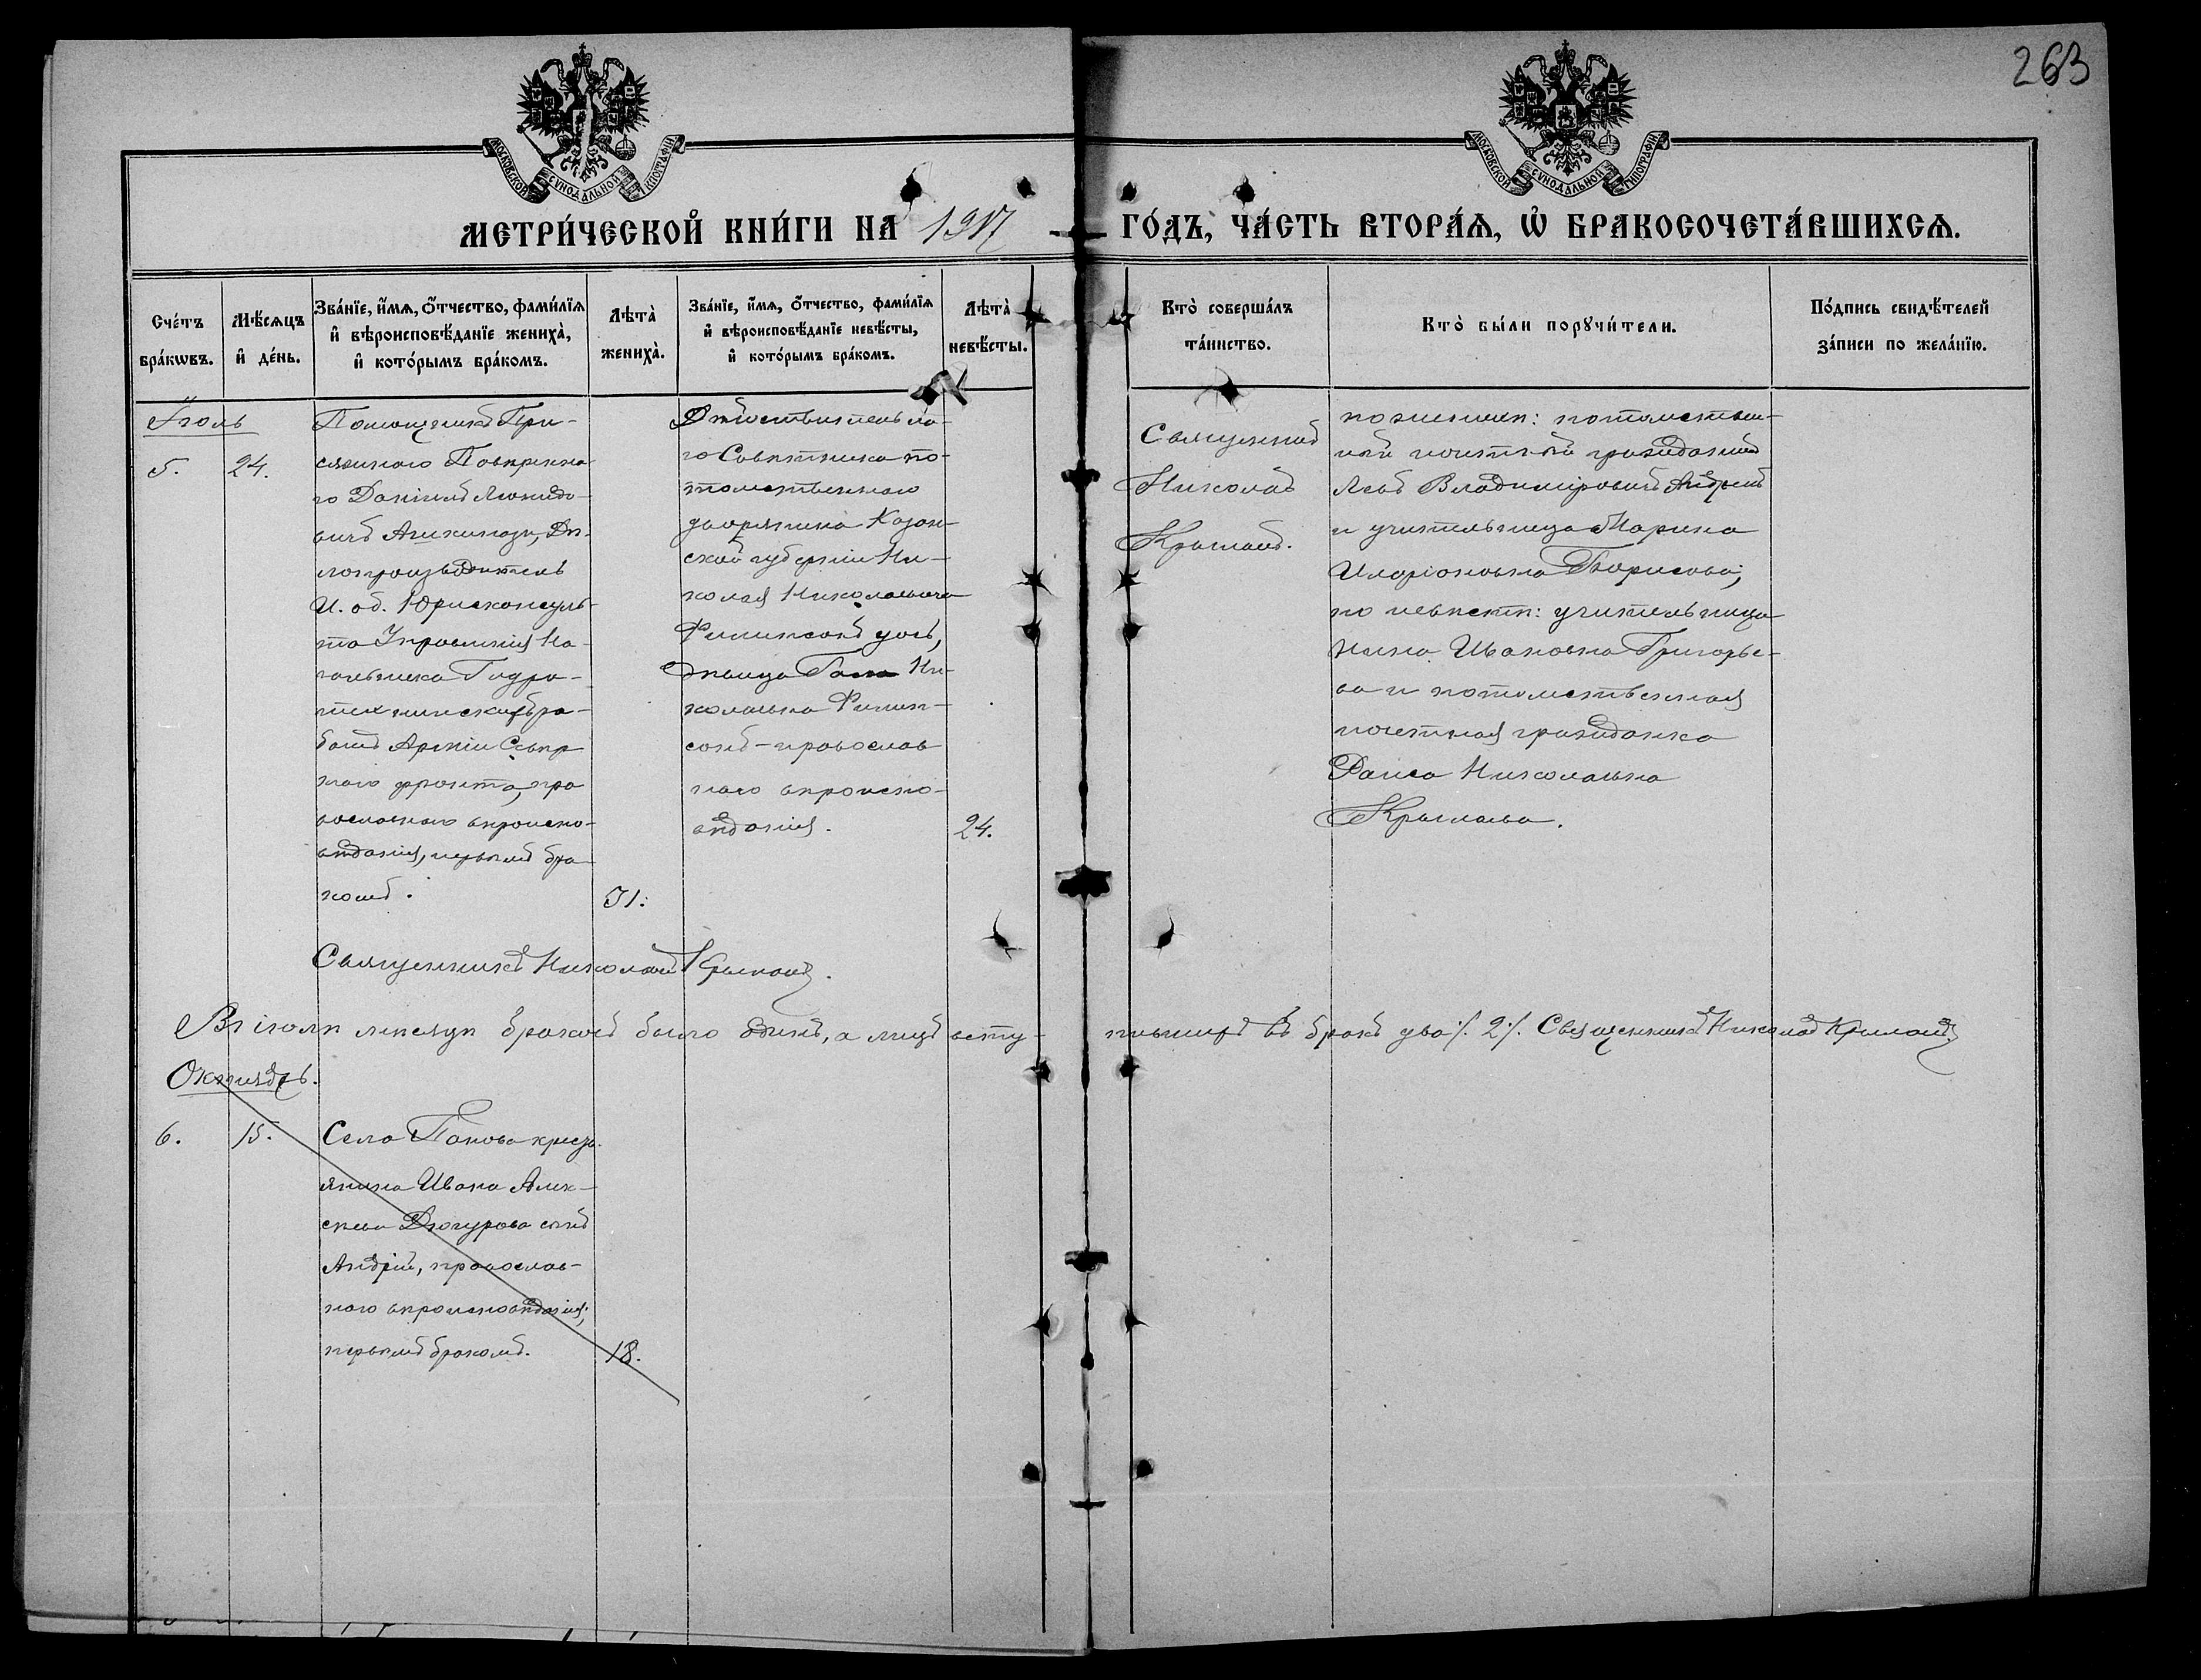 263
МОСКОВСКОЙ СѴНОДАЛЬНОЙ ТИПОГРАФІИ
МОСКОВСКОЙ СѴНОДАЛЬНОЙ ТИПОГРАФІИ
МЕТРИ́ЧЕСКОЙ КНИ́ГИ НА 1917 ГО́ДЪ, ЧА́СТЬ ВТОРА́Ѧ, Ѽ БРАКОСОЧЕТА́ВШИХСѦ.
Сче́тъ
бра́кѡвъ.
Мѣ́сѧцъ
и҆ де́нь.
Зва́нїе, и҆́мѧ, ѻ҆́тчество, фами́лїѧ
и҆ вѣроисповѣ́данїе жениха̀,
и҆ кото́рымъ бра́комъ.
Лѣта̀
жениха̀.
Зва́нїе, и҆́мѧ, ѻ҆́тчество, фами́лїѧ
и҆ вѣроисповѣ́данїе невѣ́сты,
и҆ кото́рымъ бра́комъ.
Лѣта̀
невѣ́сты.
Кто̀ соверша́лъ
та́инство.
Кто̀ бы́ли порꙋчи́тели.
По́дпись свидѣ́телей
за́писи по жела́нїю.
Іюль
5.
24.
Помощникъ При-
сяжнаго Повѣренна-
го Даніилъ Леонидо-
вичъ Дѣ-
лопроизводитель
И. об. Юрисконсуль-
та Управленія На-
чальника Гидро-
техническихъ ра-
ботъ Арміи Сѣвер
наго фронта, пра
вославнаго вѣроиспо-
вѣданія, первымъ бра-
комъ.
31.
Дѣйствительна-
го Совѣтника по-
томственнаго
дворянина Казан-
ской губерніи Ни-
колая Николаевича
Филипсонъ дочь,
дѣвица Ни-
колаевна Филип-
сонъ - православ
наго вѣроиспо-
вѣданія.
24.
Священникъ
Николай
Крыловъ.
по женихѣ: потомствен-
ный почетный гражданинъ
Левъ Владиміровичъ Андреевъ
и учительница Марина
Иларіоновна Борисова;
по невѣстѣ: учительница
Нина Ивановна Григорье-
ва и потомственная
почетная гражданка
Раиса Николаевна
Крылова.
Священникъ Николай Крыловъ.
Въ іюлѣ мѣсяцѣ браковъ было одинъ, а лицъ всту- пившихъ въ бракъ два ·/. 2 ·/. Священникъ Николай Крыловъ.
Октябрь.
6.
15.
Села Панова кресть-
янина Ивана Алек-
сѣева сынъ
Андрей, православ-
наго вѣроисповѣданія,
первымъ бракомъ.
18.